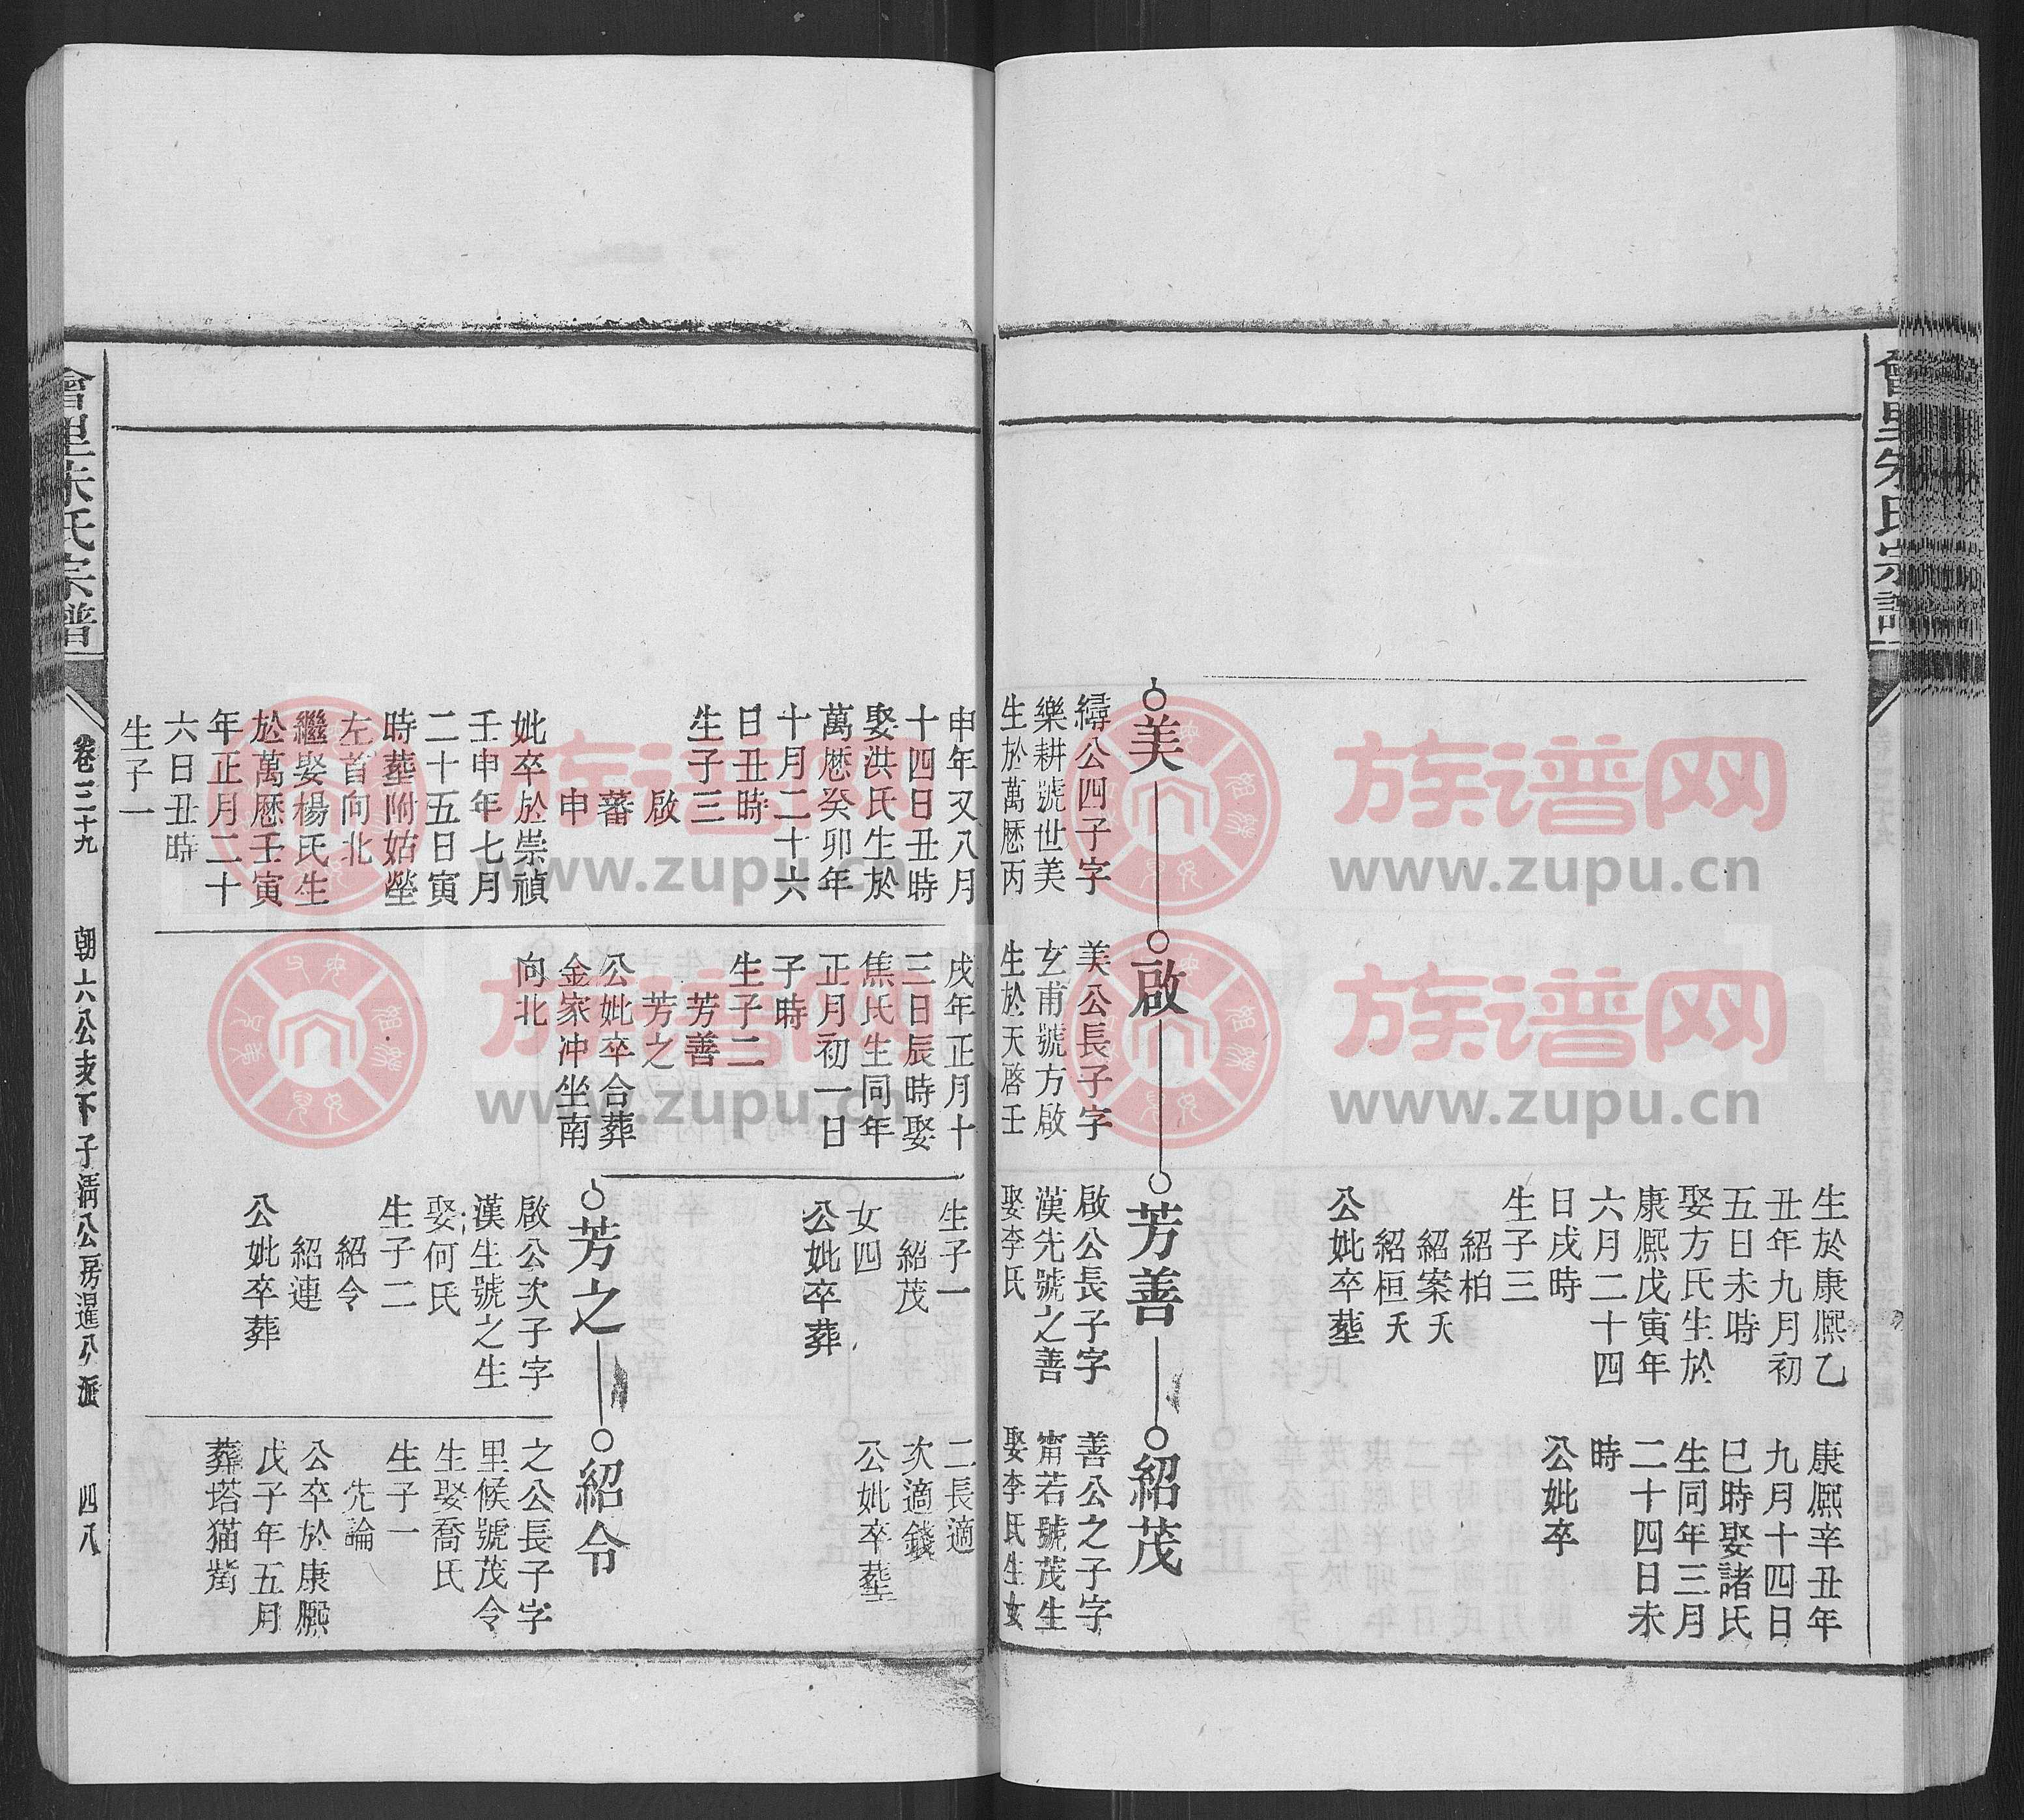 會里朱氏宗譜
生於康熈乙
丑年九月初
五日未時
娶方氏生於
康熈戊寅年
六月二十四
日戌時
生子三
紹柏
紹案夭
紹桓夭
公妣卒塟
康熈辛丑年
九月十四日
巳時娶諸氏
生同年三月
二十四日未
時
公妣卒
美
㝷公四子字
樂耕號世美
生於萬厯丙
申年又八月
十四日丑時
娶洪氏生於
萬厯癸卯年
十月二十六
日丑時
生子三
啟
蕃
申
妣卒於崇禎
壬申年七月
二十五日寅
時塟附姑塋
左首向北
繼娶楊氏生
於萬厯壬寅
年正月二十
六日丑時
生子一
啟
美公長子字
玄甫號方啟
生於天啓壬
戌年正月十
三日辰時娶
焦氏生同年
正月初一日
子時
生子二
芳善
芳之
公妣卒合葬
金家冲坐南
向北
芳善
啟公長子字
漢先號之善
娶李氏
生子一
紹茂
女四
公妣卒葬
芳之
啟公次子字
漢生號之生
娶何氏
生子二
紹令
紹連
公妣卒葬
紹茂
善公之子字
甯若號茂生
娶李氏生女
二長適
次適錢
公妣卒塟
紹令
之公長子字
里候號茂令
生娶喬氏
生子一
先論
公卒於康熈
戊子年五月
葬塔猫嘴
會里朱氏宗譜
卷二十九
朝六公支下子清公房暹公派
四八
族谱网
www.zupu.cn
族谱网
www.zupu.cn
族谱网
www.zupu.cn
族谱网
www.zupu.cn